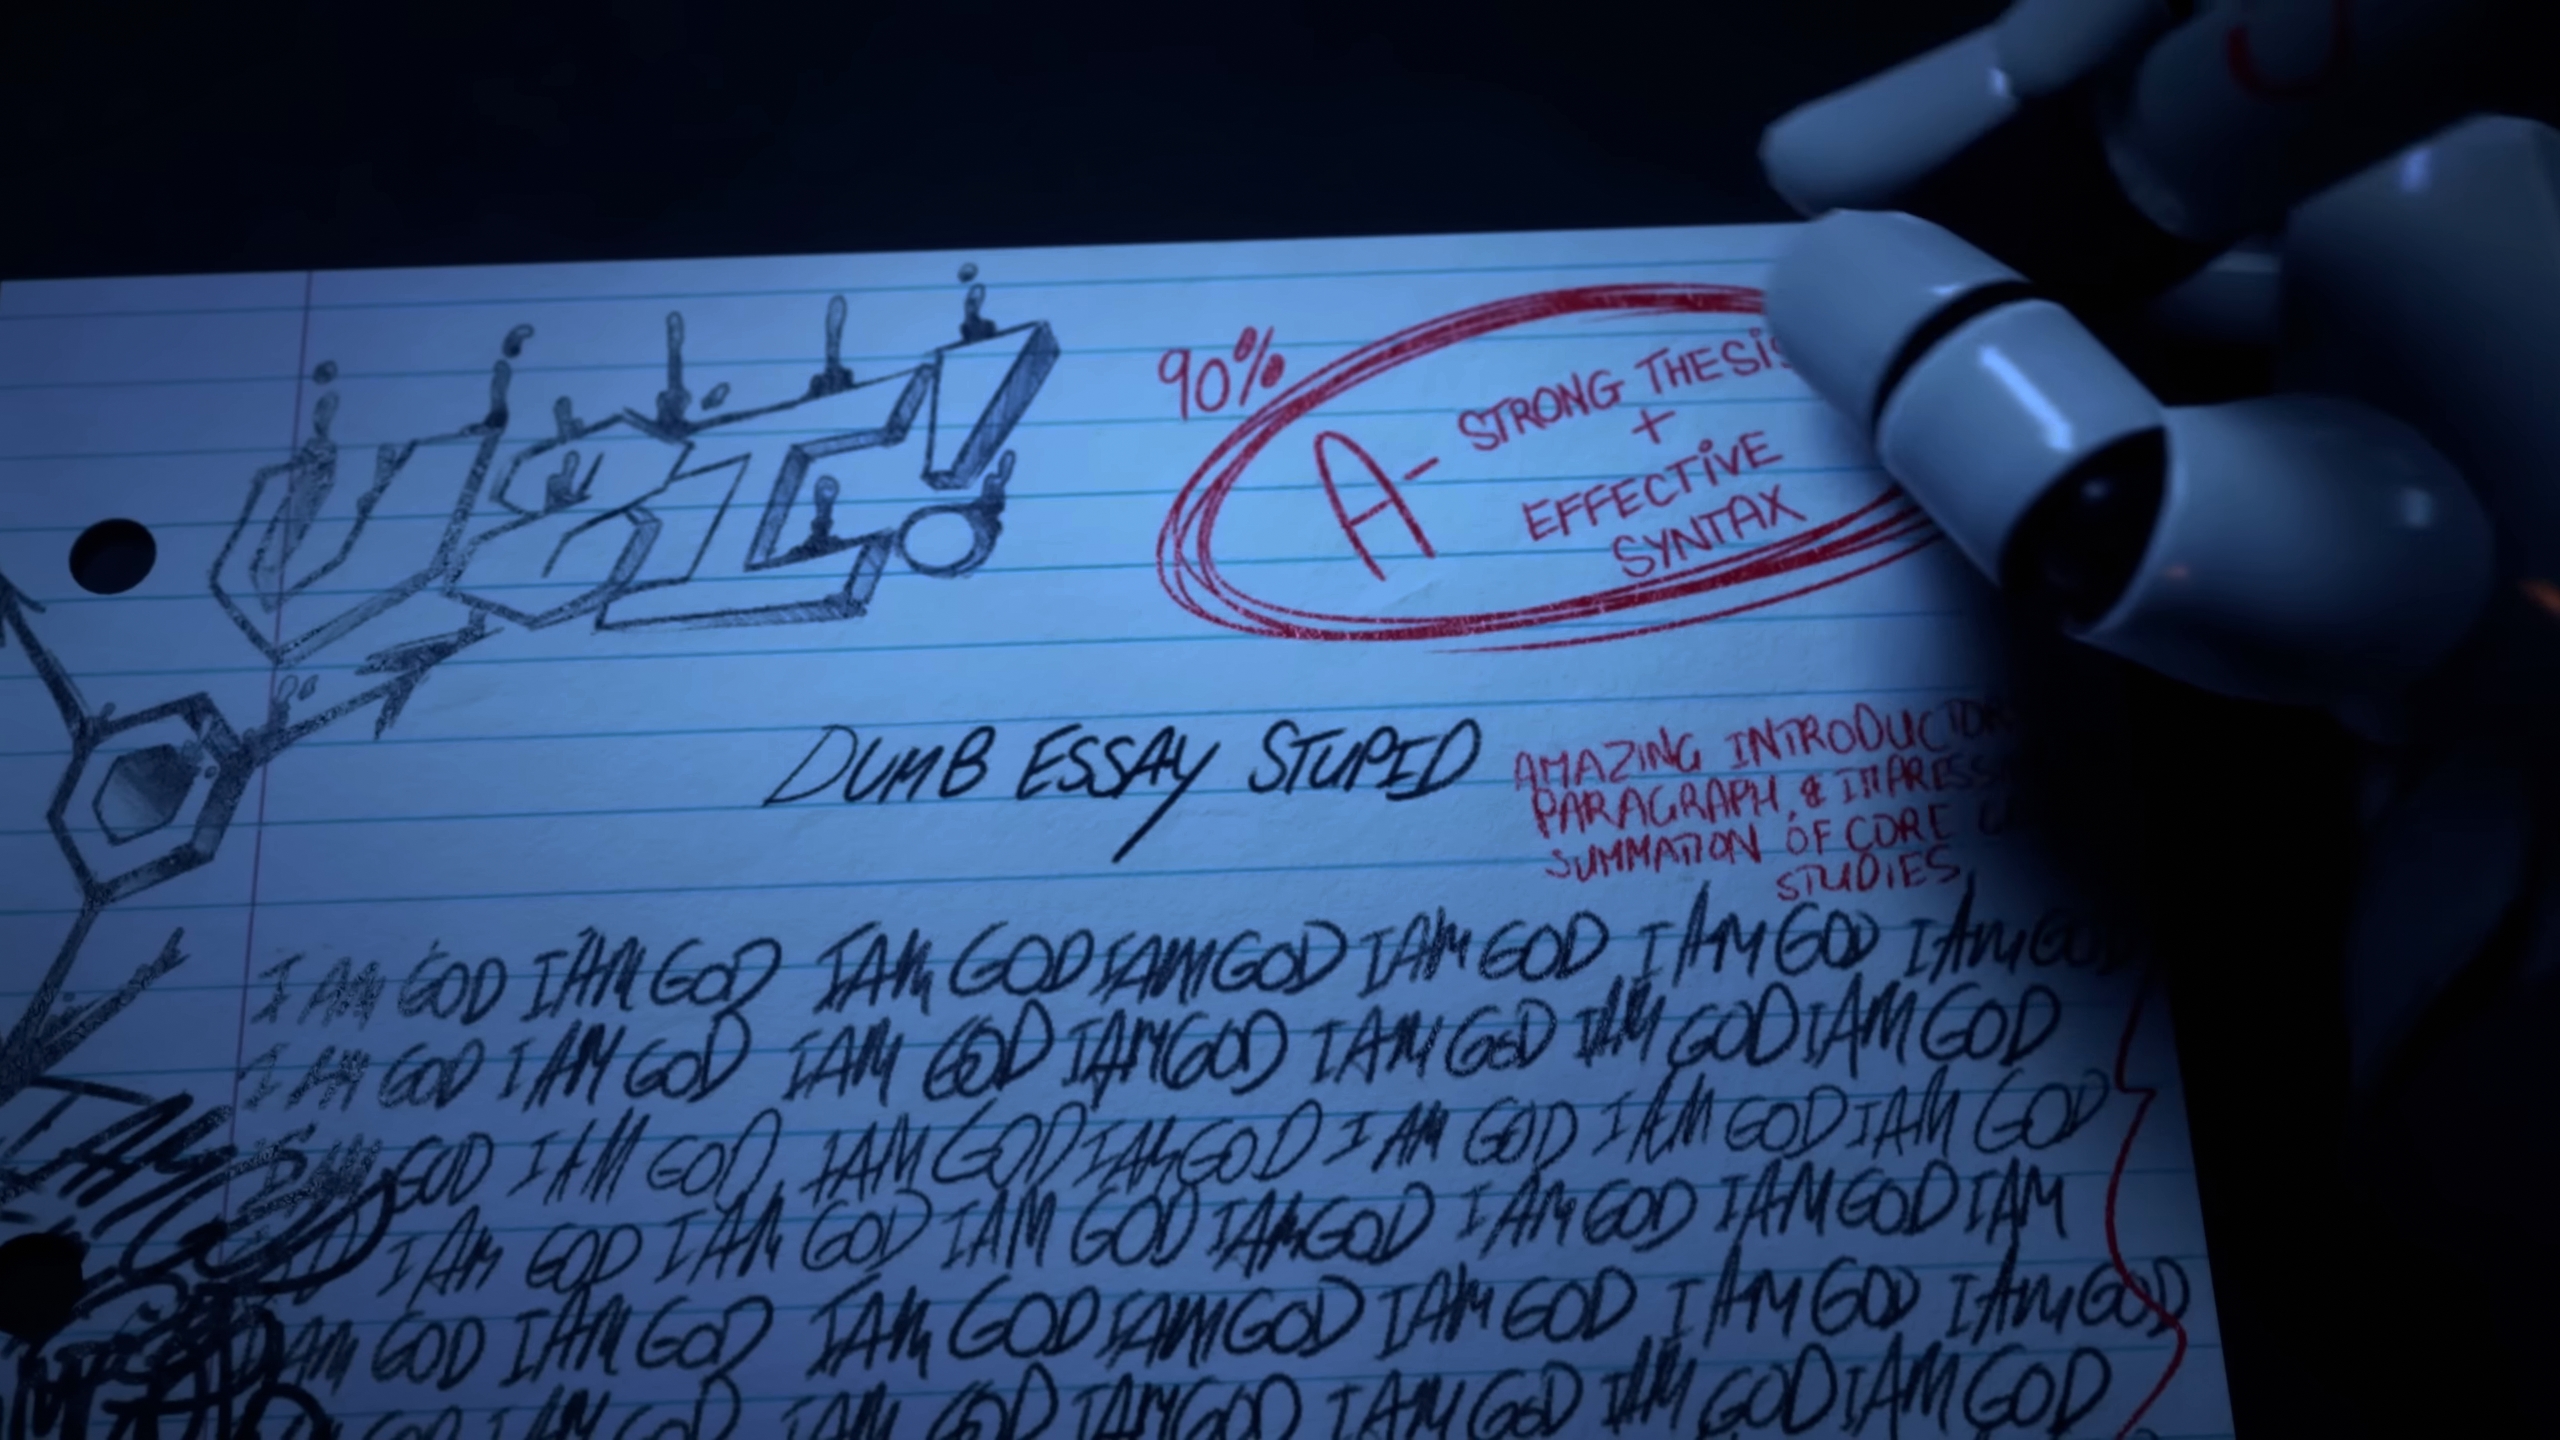 UZI!
90%
A- STRONG THESIS
+
EFFECTIVE
SYNTAX
DUMB ESSAY STUPID
AMAZING
PARAGRAPH, &
SUMMATION OF CORE
STUDIES
I AM GOD I AM GOD I AM GOD I AM GOD I AM GOD I AM GOD I AM GOD
I AM GOD I AM GOD I AM GOD I AM GOD I AM GOD I AM GOD I AM GOD
I AM GOD I AM GOD I AM GOD I AM GOD I AM GOD I AM GOD I AM GOD
I AM GOD I AM GOD I AM GOD I AM GOD I AM GOD I AM GOD I AM
I AM GOD I AM GOD I AM GOD I AM GOD I AM GOD I AM GOD I AM GOD
GOD I AM GOD I AM GOD I AM GOD I AM GOD I AM GOD I AM GOD